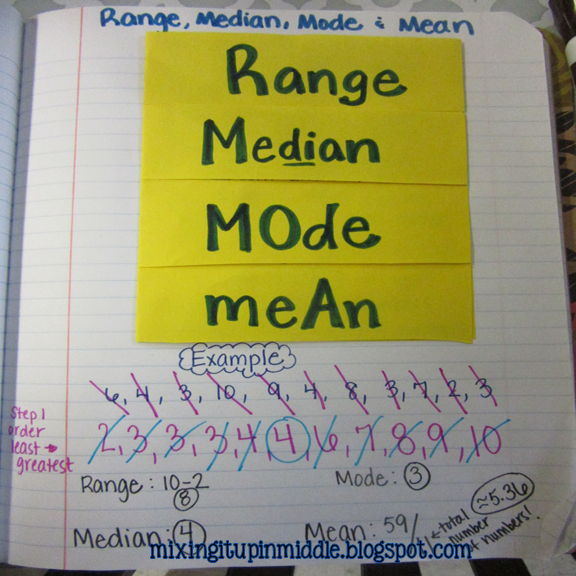 Range, Median, Mode & Mean
Range
Median
MOde
meAn
Example
6, 4, 3, 10, 9, 4, 8, 3, 7, 2, 3
Step 1
order
least →
greatest
2, 3, 3, 3, 4, 4, 6, 7, 8, 9, 10
Range: 10-2
8
Mode: 3
Median: 4
Mean: 59/
≈5.36
← total
number
of numbers!
mixingitupinmiddle.blogspot.com